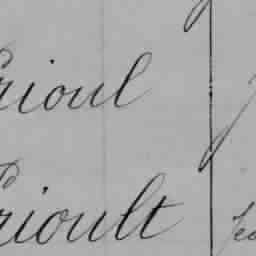 rioul
rioult